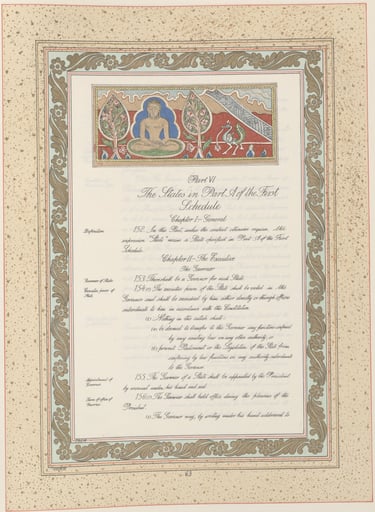 Part VI
The States in Part A of the First
Schedule
Chapter I.- General
Definition
152. In this Part, unless the context otherwise requires, the
expression "State" means a State specified in Part A of the First
Schedule.
Chapter II.- The Executive
The Governor
Governors of States.
153. There shall be a Governor for each State.
Executive power of
State.
154.(1) The executive power of the State shall be vested in the
Governor and shall be exercised by him either directly or through officers
subordinate to him in accordance with this Constitution.
(2) Nothing in this article shall-
(a) be deemed to transfer to the Governor any functions conferred
by any existing law on any other authority; or
(b) prevent Parliament or the Legislature of the State from
conferring by law functions on any authority subordinate
to the Governor.
Appointment of
Governor.
155. The Governor of a State shall be appointed by the President
by warrant under his hand and seal.
Term of office of
Governor.
156.(1) The Governor shall hold office during the pleasure of the
President.
(2) The Governor may, by writing under his hand addressed to
63